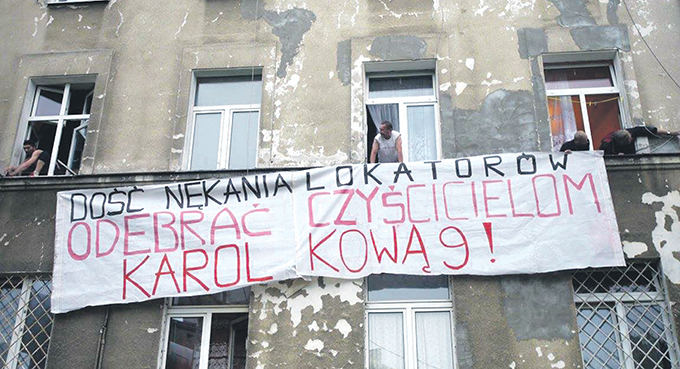 DOŚĆ NĘKANIA LOKATORÓW
ODEBRAĆ CZYŚCICIELOM
KAROLKOWĄ 9!